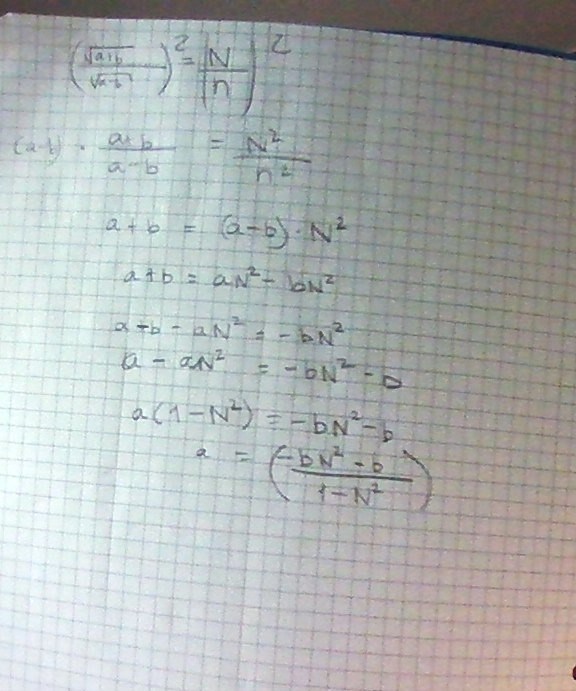 (√a+b / √a-b)² = (N / n)²
(a-b) · a+b / a-b = N² / n²
a + b = (a-b) · N²
a+b = aN² - bN²
a+b - aN² = -bN²
a - aN² = -bN² - b
a(1-N²) = -bN² - b
a = (-bN² - b / 1-N²)